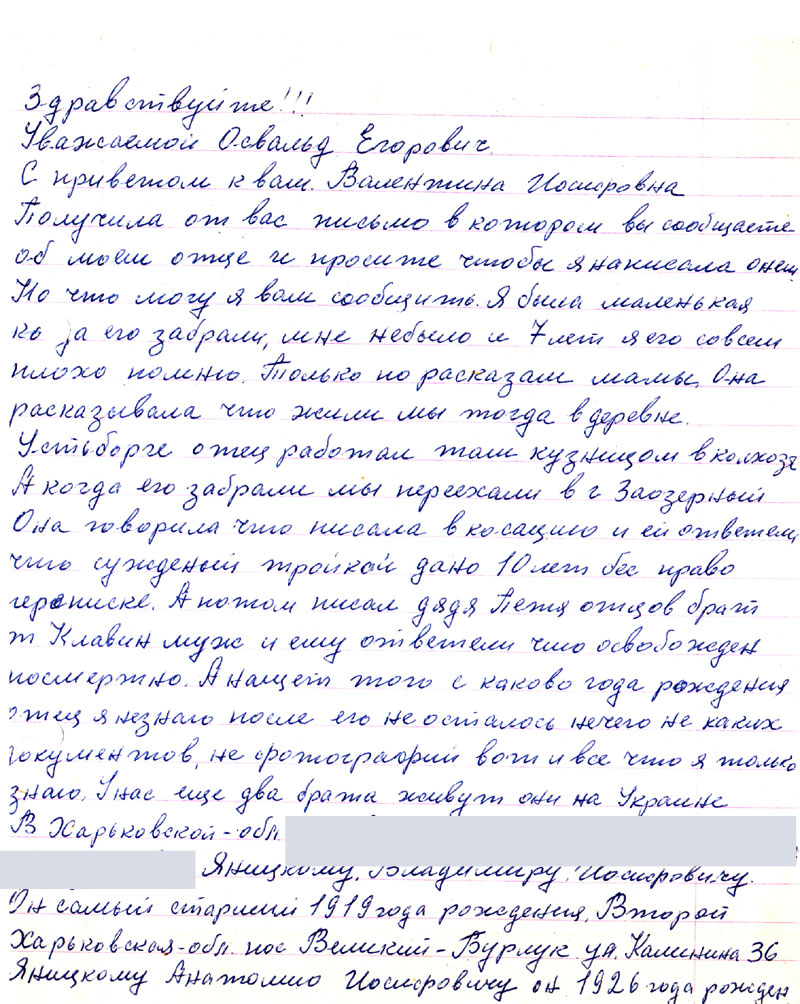 Здравствуйте!!!
Уважаемой Освальд Егорович.
С приветом к вам. Валентина Иосифовна
Получила от вас письмо в котором вы сообщаете
об моем отце и просите чтобы я написала о нем
Но что могу я вам сообщить. Я была маленькая
ко да его забрали, мне небыло и 7 лет я его совсем
плохо помню. Только по расказам мамы. Она
расказывала что жили мы тогда в деревне.
Устьборге отец работал там кузницом в колхозе
А когда его забрали мы переехали в г Заозерный
Она говорила что писала в косацию и ей ответели
что сужденый тройкой дано 10 лет бес право
переписке. А потом писал дядя Петя отцов брат
т Клавин муж и ему ответели что освобожден
посмертно. А нащет того с каково года рождения
отец я незнаю после его не осталось нечего не каких
документов, не фотографий вот и все что я только
знаю. Унас еще два брата живут они на Украине
В Харьковской-обл.
Яницкому. Владимиру. Иосифовичу.
Он самый старший 1919 года рождения. Второй
Харьковская-обл. пос Великий-Бурлук ул. Калинина 36
Яницкому Анатолию Иосифовичу он 1926 года рожден